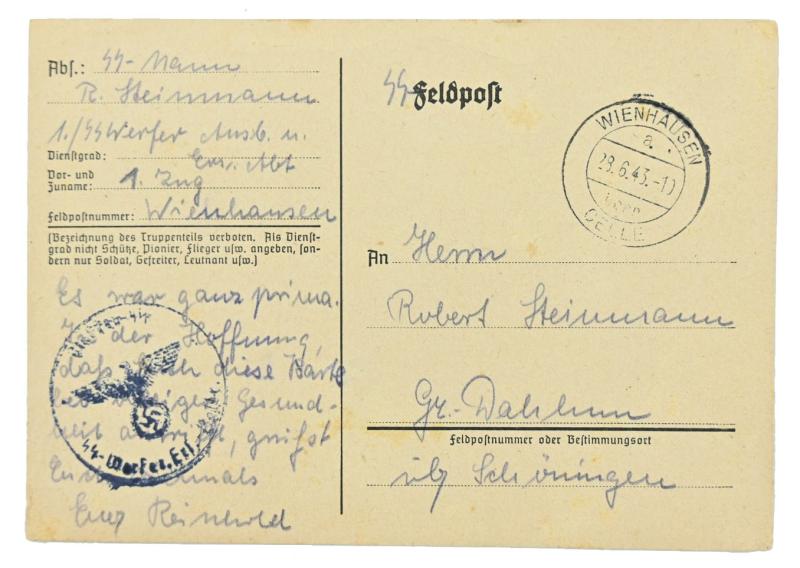 Abs.: SS-Mann
R. Steinmann
1./SS Werfer Ausb. u.
Dienstgrad: Ers. Abt
Vor- und Zuname: 1. Zug
Feldpostnummer: Wienhausen
(Bezeichnung des Truppenteils verboten. Als Dienst-
grad nicht Schütze, Pionier, Flieger usw. angeben, son-
dern nur Soldat, Gefreiter, Leutnant usw.)
Es war ganz prima.
In der Hoffnung,
daß Euch diese Karte
bei Gesund-
heit antrifft, grüßt
Euch nochmals
Euer Reinhold
SS-Werfer
SS Feldpost
WIENHAUSEN
a
28.6.43.-10
CELLE
An Herrn
Robert Steinmann
Gr.-Dahlum
Feldpostnummer oder Bestimmungsort
üb/ Schöningen